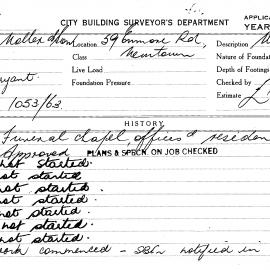 CITY BUILDING SURVEYOR'S DEPARTMENT
APPLICA
YEAR
Location 59 Enmore Rd, Description
Class Newtown Nature of Foundat
Live Load Depth of Footings
Foundation Pressure Checked by
1053/63. Estimate
HISTORY
Funeral chapel, offices & residen
Approved PLANS & SPECN. ON JOB CHECKED
not started.
not started
not started.
not started.
not started.
not started.
not started
not started.
work commenced - notified in